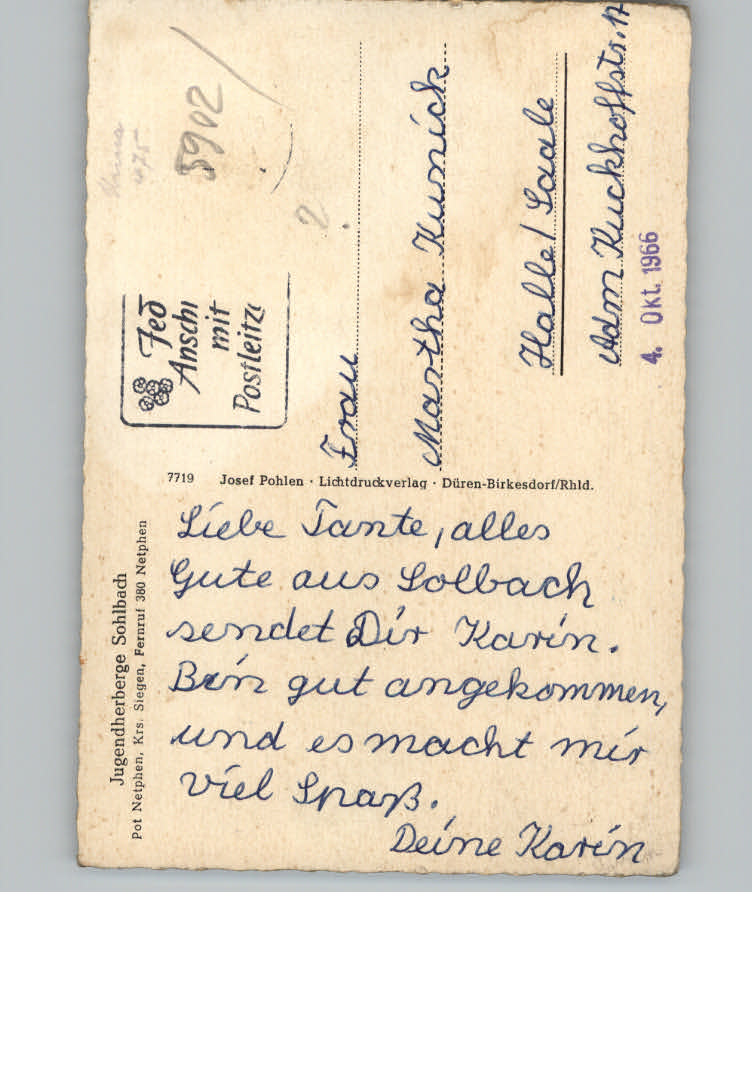 Jugendherberge Sohlbach
Pot Netphen, Krs. Siegen, Fernruf 380 Netphen
Liebe Tante, alles
Gute aus Solbach
sendet Dir Karin.
Bin gut angekommen,
und es macht mir
viel Spaß.
Deine Karin
7719 Josef Pohlen · Lichtdruckverlag · Düren-Birkesdorf/Rhld.
5902
2.
Jed
Anschi
mit
Postleitz
Frau
Martha Kunick
Halle / Saale
Adm Kuckhoffstr. 17
4. Okt. 1966